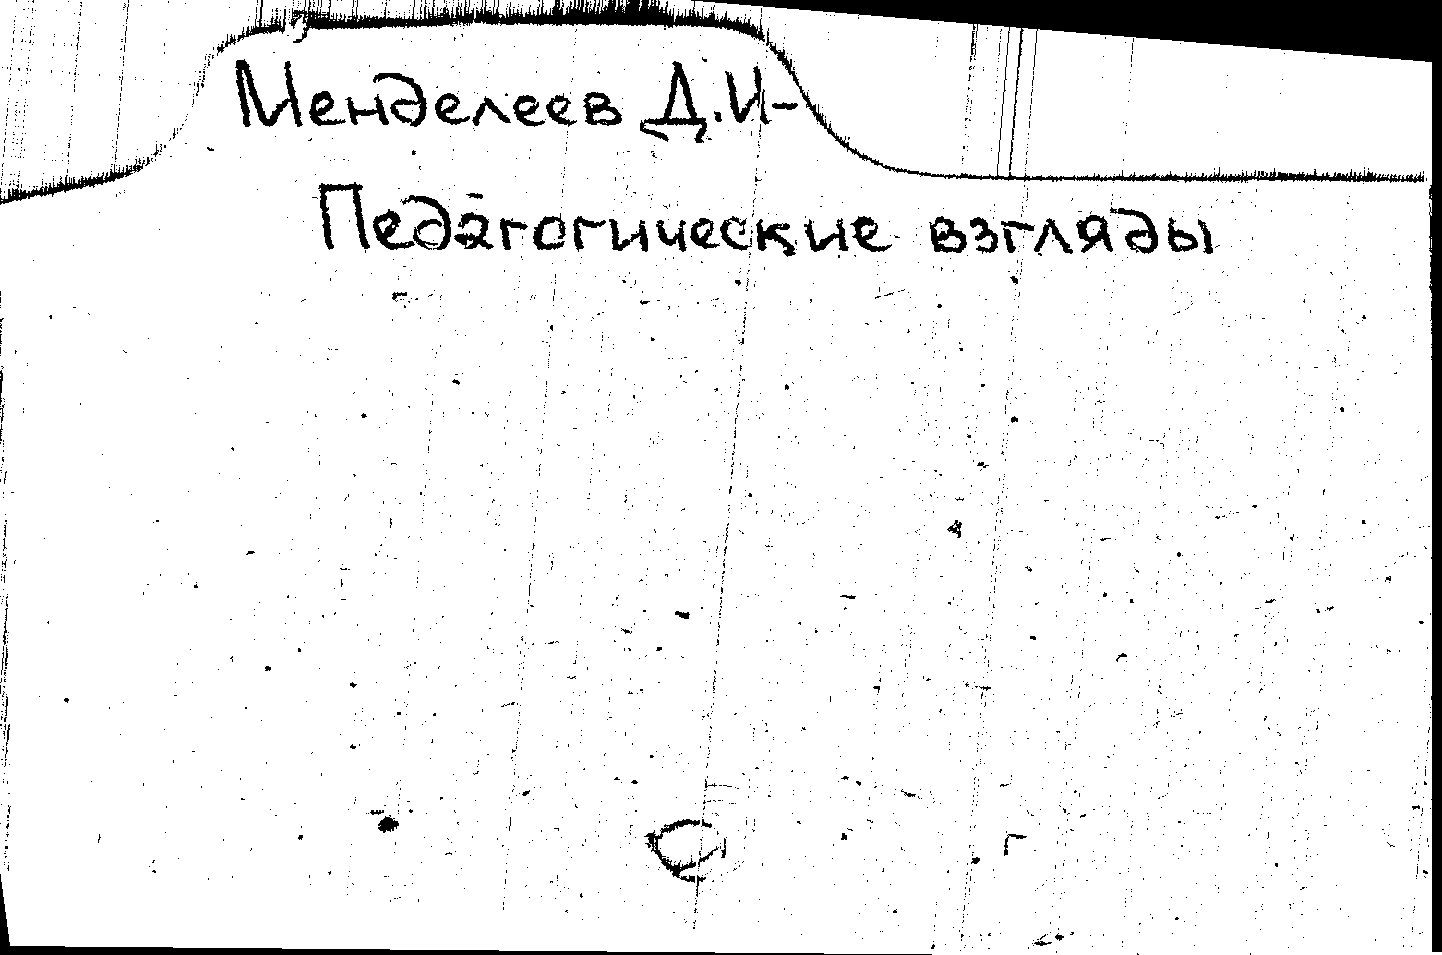 Менделеев Д.И-
Педагогические взгляды